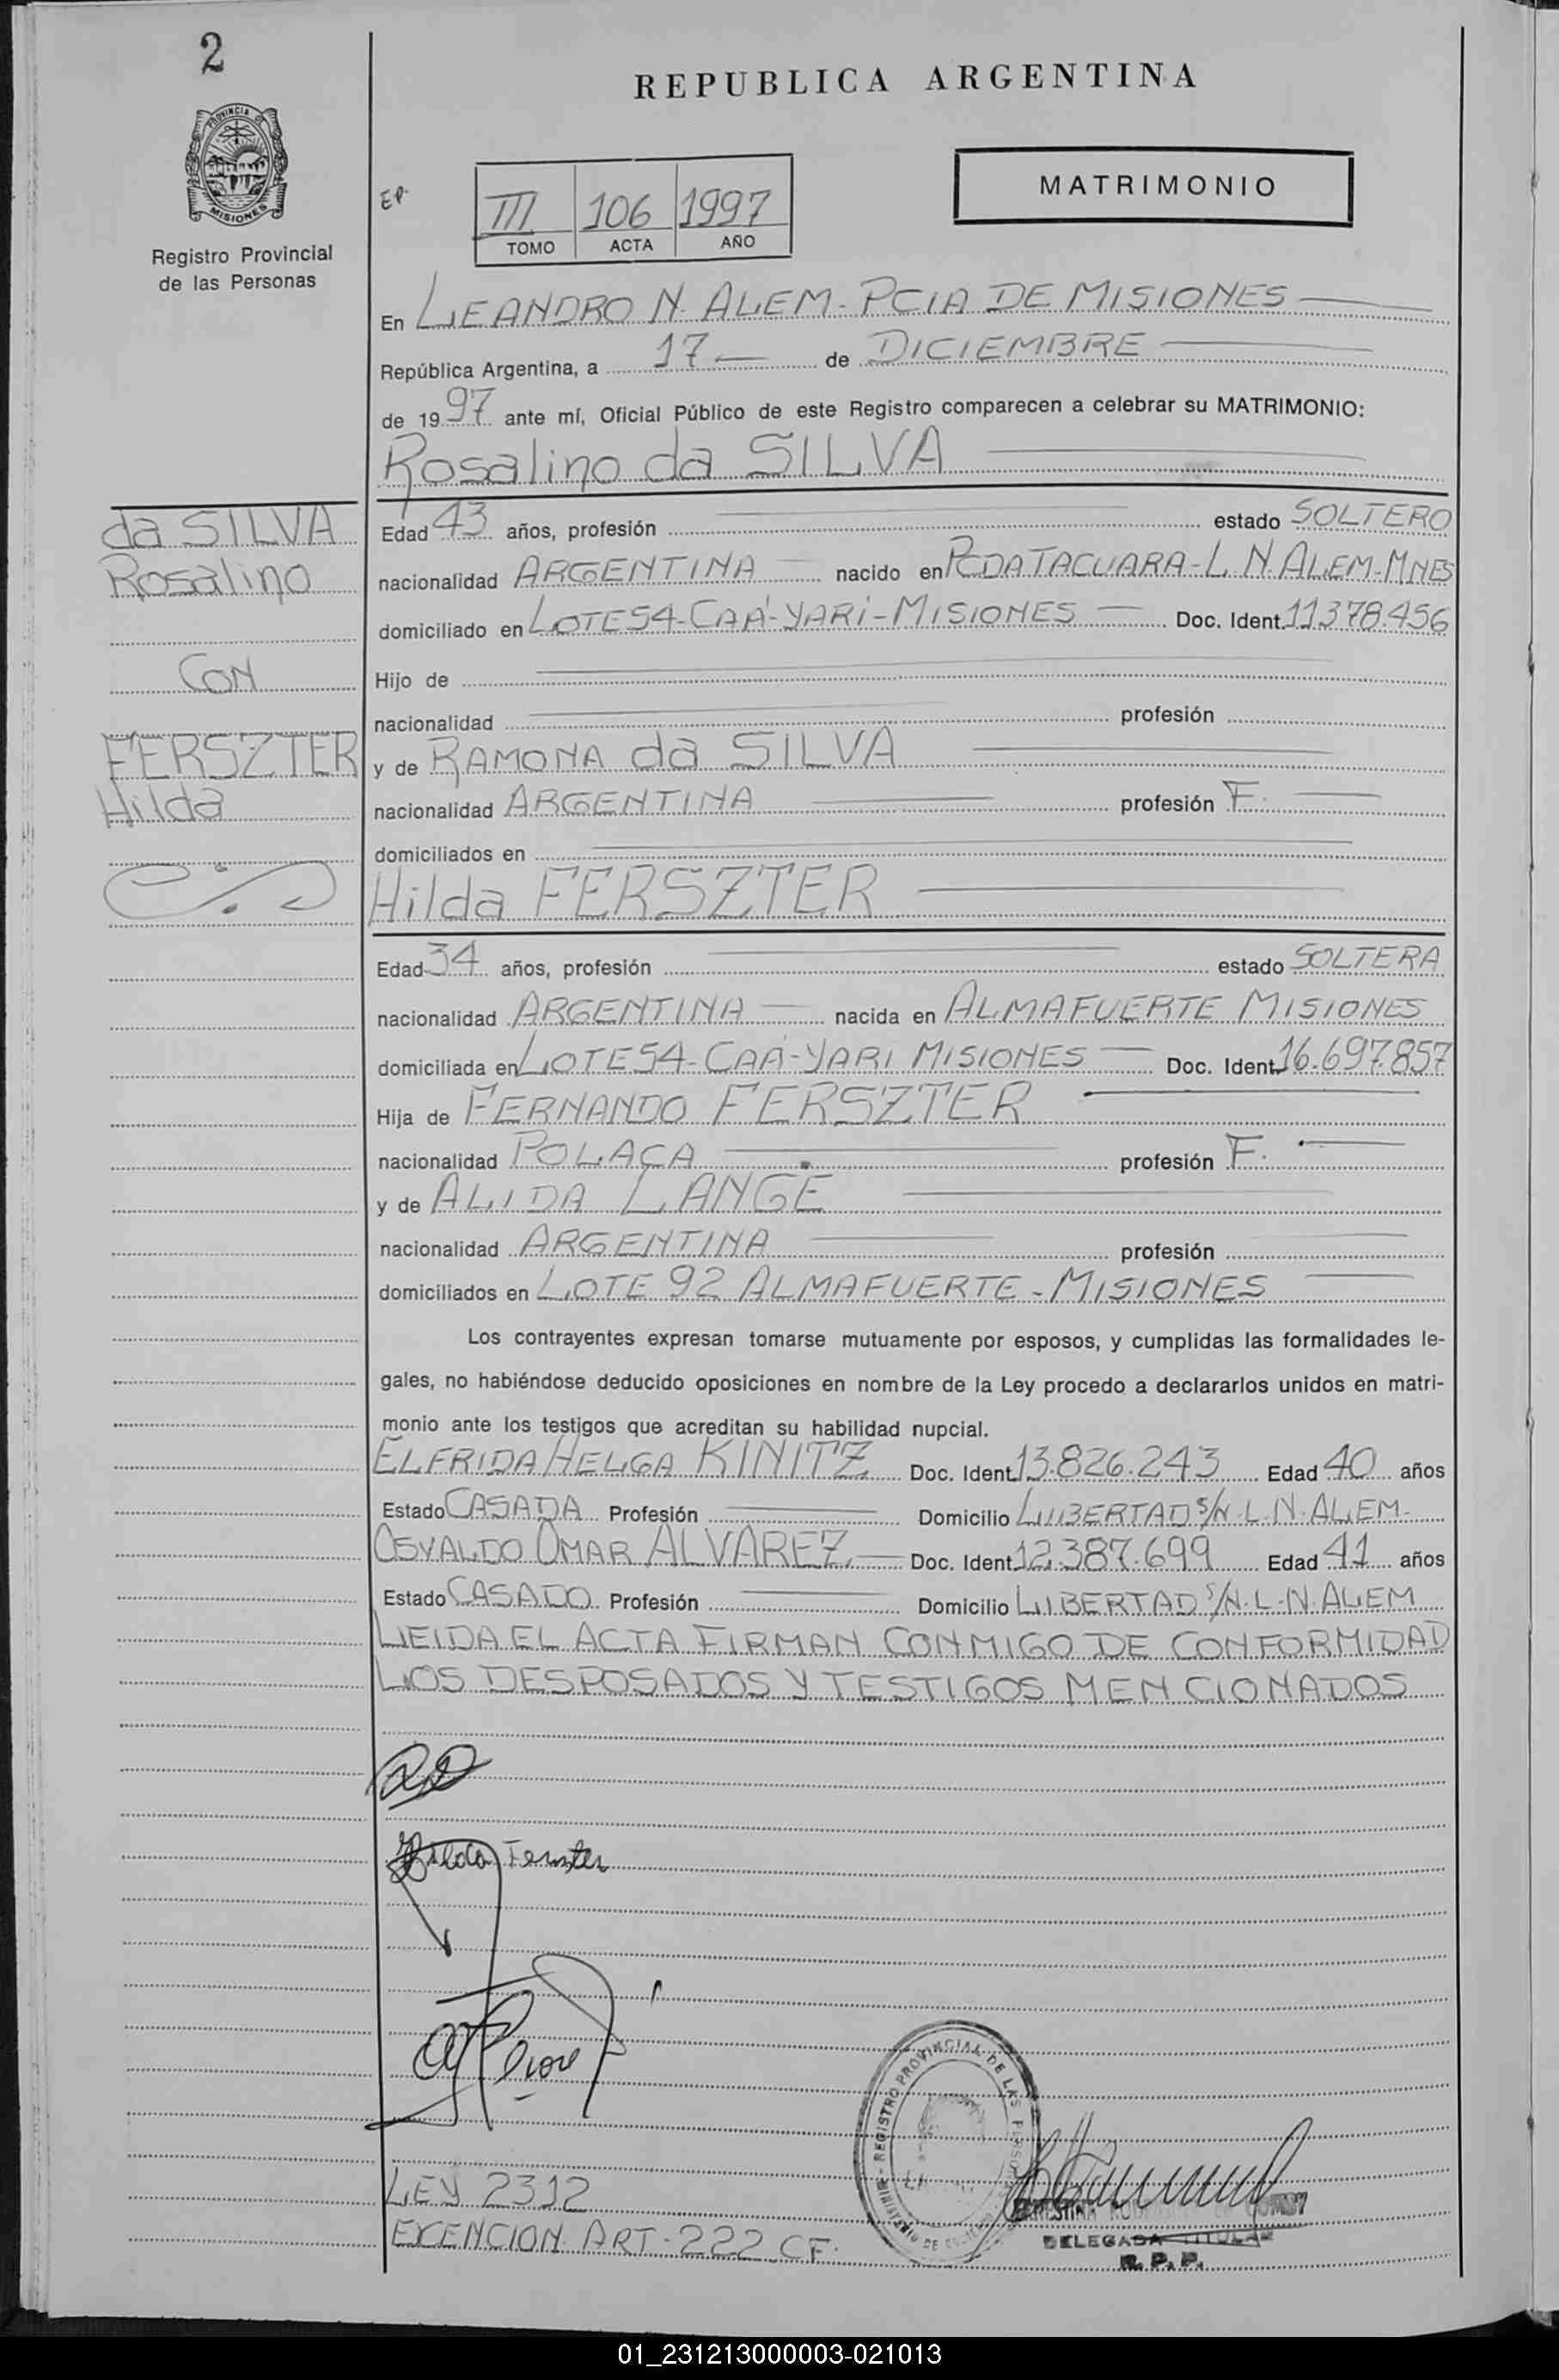 2
REPUBLICA ARGENTINA
PROVINCIA DE
MISIONES
Registro Provincial
de las Personas
EP.
III 106 1997
TOMO ACTA AÑO
MATRIMONIO
En LEANDRO N. ALEM - PCIA DE MISIONES
República Argentina, a 17 de DICIEMBRE
de 1997 ante mí, Oficial Público de este Registro comparecen a celebrar su MATRIMONIO:
Rosalino da SILVA
da SILVA
Rosalino
CON
FERSZTER
Hilda
Edad 43 años, profesión estado SOLTERO
nacionalidad ARGENTINA nacido en PCDA TACUARA - L. N. ALEM - MNES
domiciliado en LOTE 54 - CAÁ - YARI - MISIONES Doc. Ident. 11378.456
Hijo de
nacionalidad profesión
y de RAMONA da SILVA
nacionalidad ARGENTINA profesión F.
domiciliados en
Hilda FERSZTER
Edad 34 años, profesión estado SOLTERA
nacionalidad ARGENTINA nacida en ALMAFUERTE MISIONES
domiciliada en LOTE 54 - CAÁ - YARI MISIONES Doc. Ident. 16.697.857
Hija de FERNANDO FERSZTER
nacionalidad POLACA profesión F.
y de ALIDA LANGE
nacionalidad ARGENTINA profesión
domiciliados en LOTE 92 ALMAFUERTE - MISIONES
Los contrayentes expresan tomarse mutuamente por esposos, y cumplidas las formalidades le-
gales, no habiéndose deducido oposiciones en nombre de la Ley procedo a declararlos unidos en matri-
monio ante los testigos que acreditan su habilidad nupcial.
ELFRIDA HELGA KINITZ Doc. Ident. 13.826.243 Edad 40 años
Estado CASADA Profesión Domicilio LIBERTAD S/N. L. N. ALEM.
OSVALDO OMAR ALVAREZ Doc. Ident. 12.387.699 Edad 41 años
Estado CASADO Profesión Domicilio LIBERTAD S/N. L. N. ALEM
LEIDA EL ACTA FIRMAN CONMIGO DE CONFORMIDAD
LOS DESPOSADOS Y TESTIGOS MENCIONADOS
Hilda Ferszter
REGISTRO PROVINCIAL DE LAS
LEY 2312
EXENCION ART. 222 CF.
DELEGADA TITULAR
R. P. P.
01_231213000003-021013